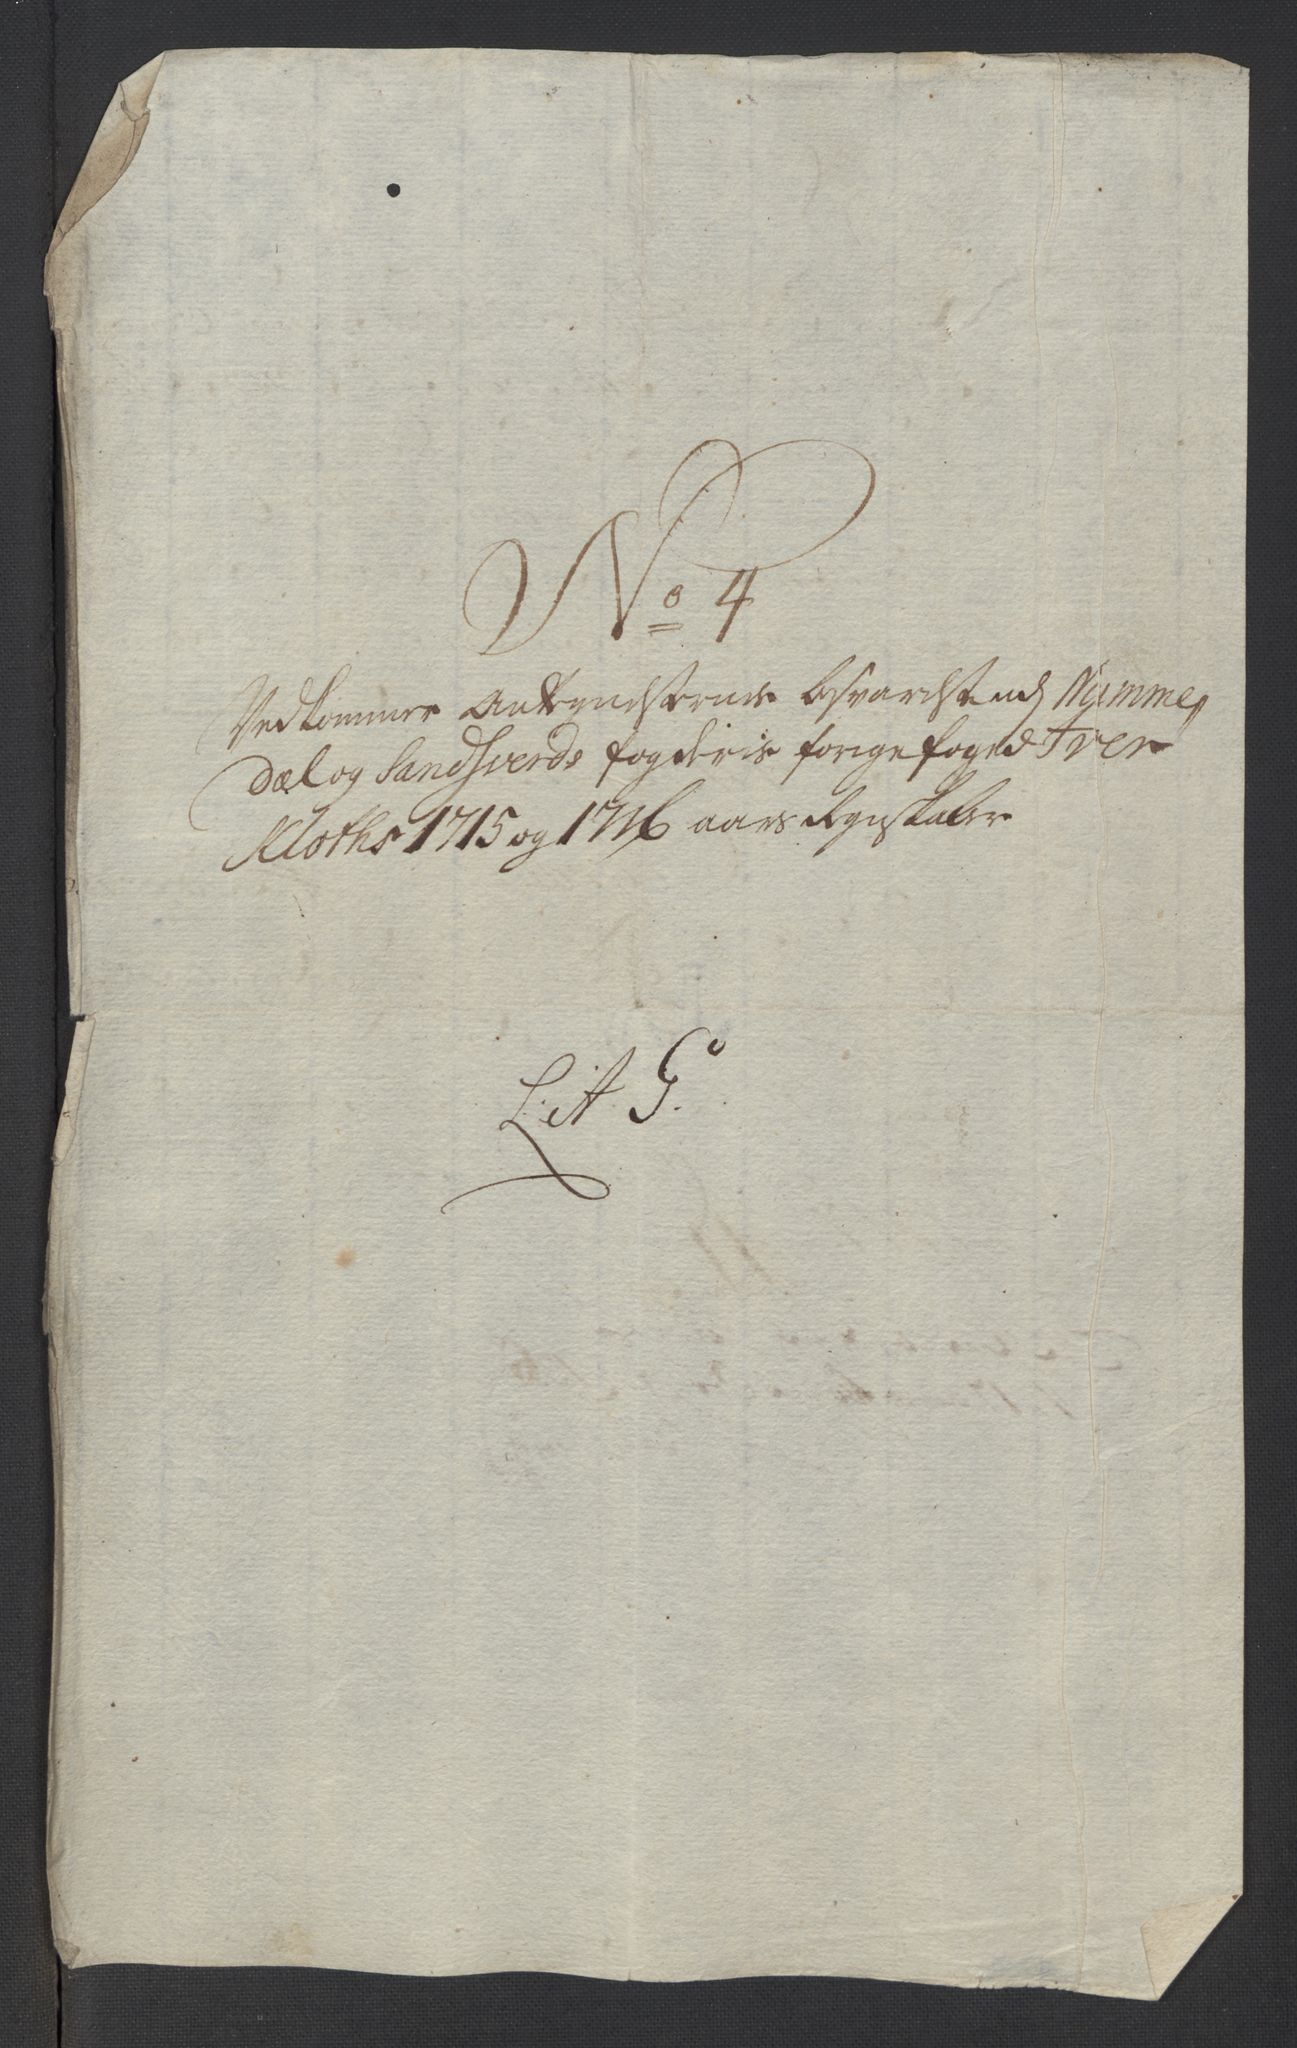 No 4
Vedkommer Antegnelserne besvarelse udj Numme,
dal og Sandsverds fogderis forige foged Iver
Kloths 1715 og 1716 aars Regnskaber
Lit G.